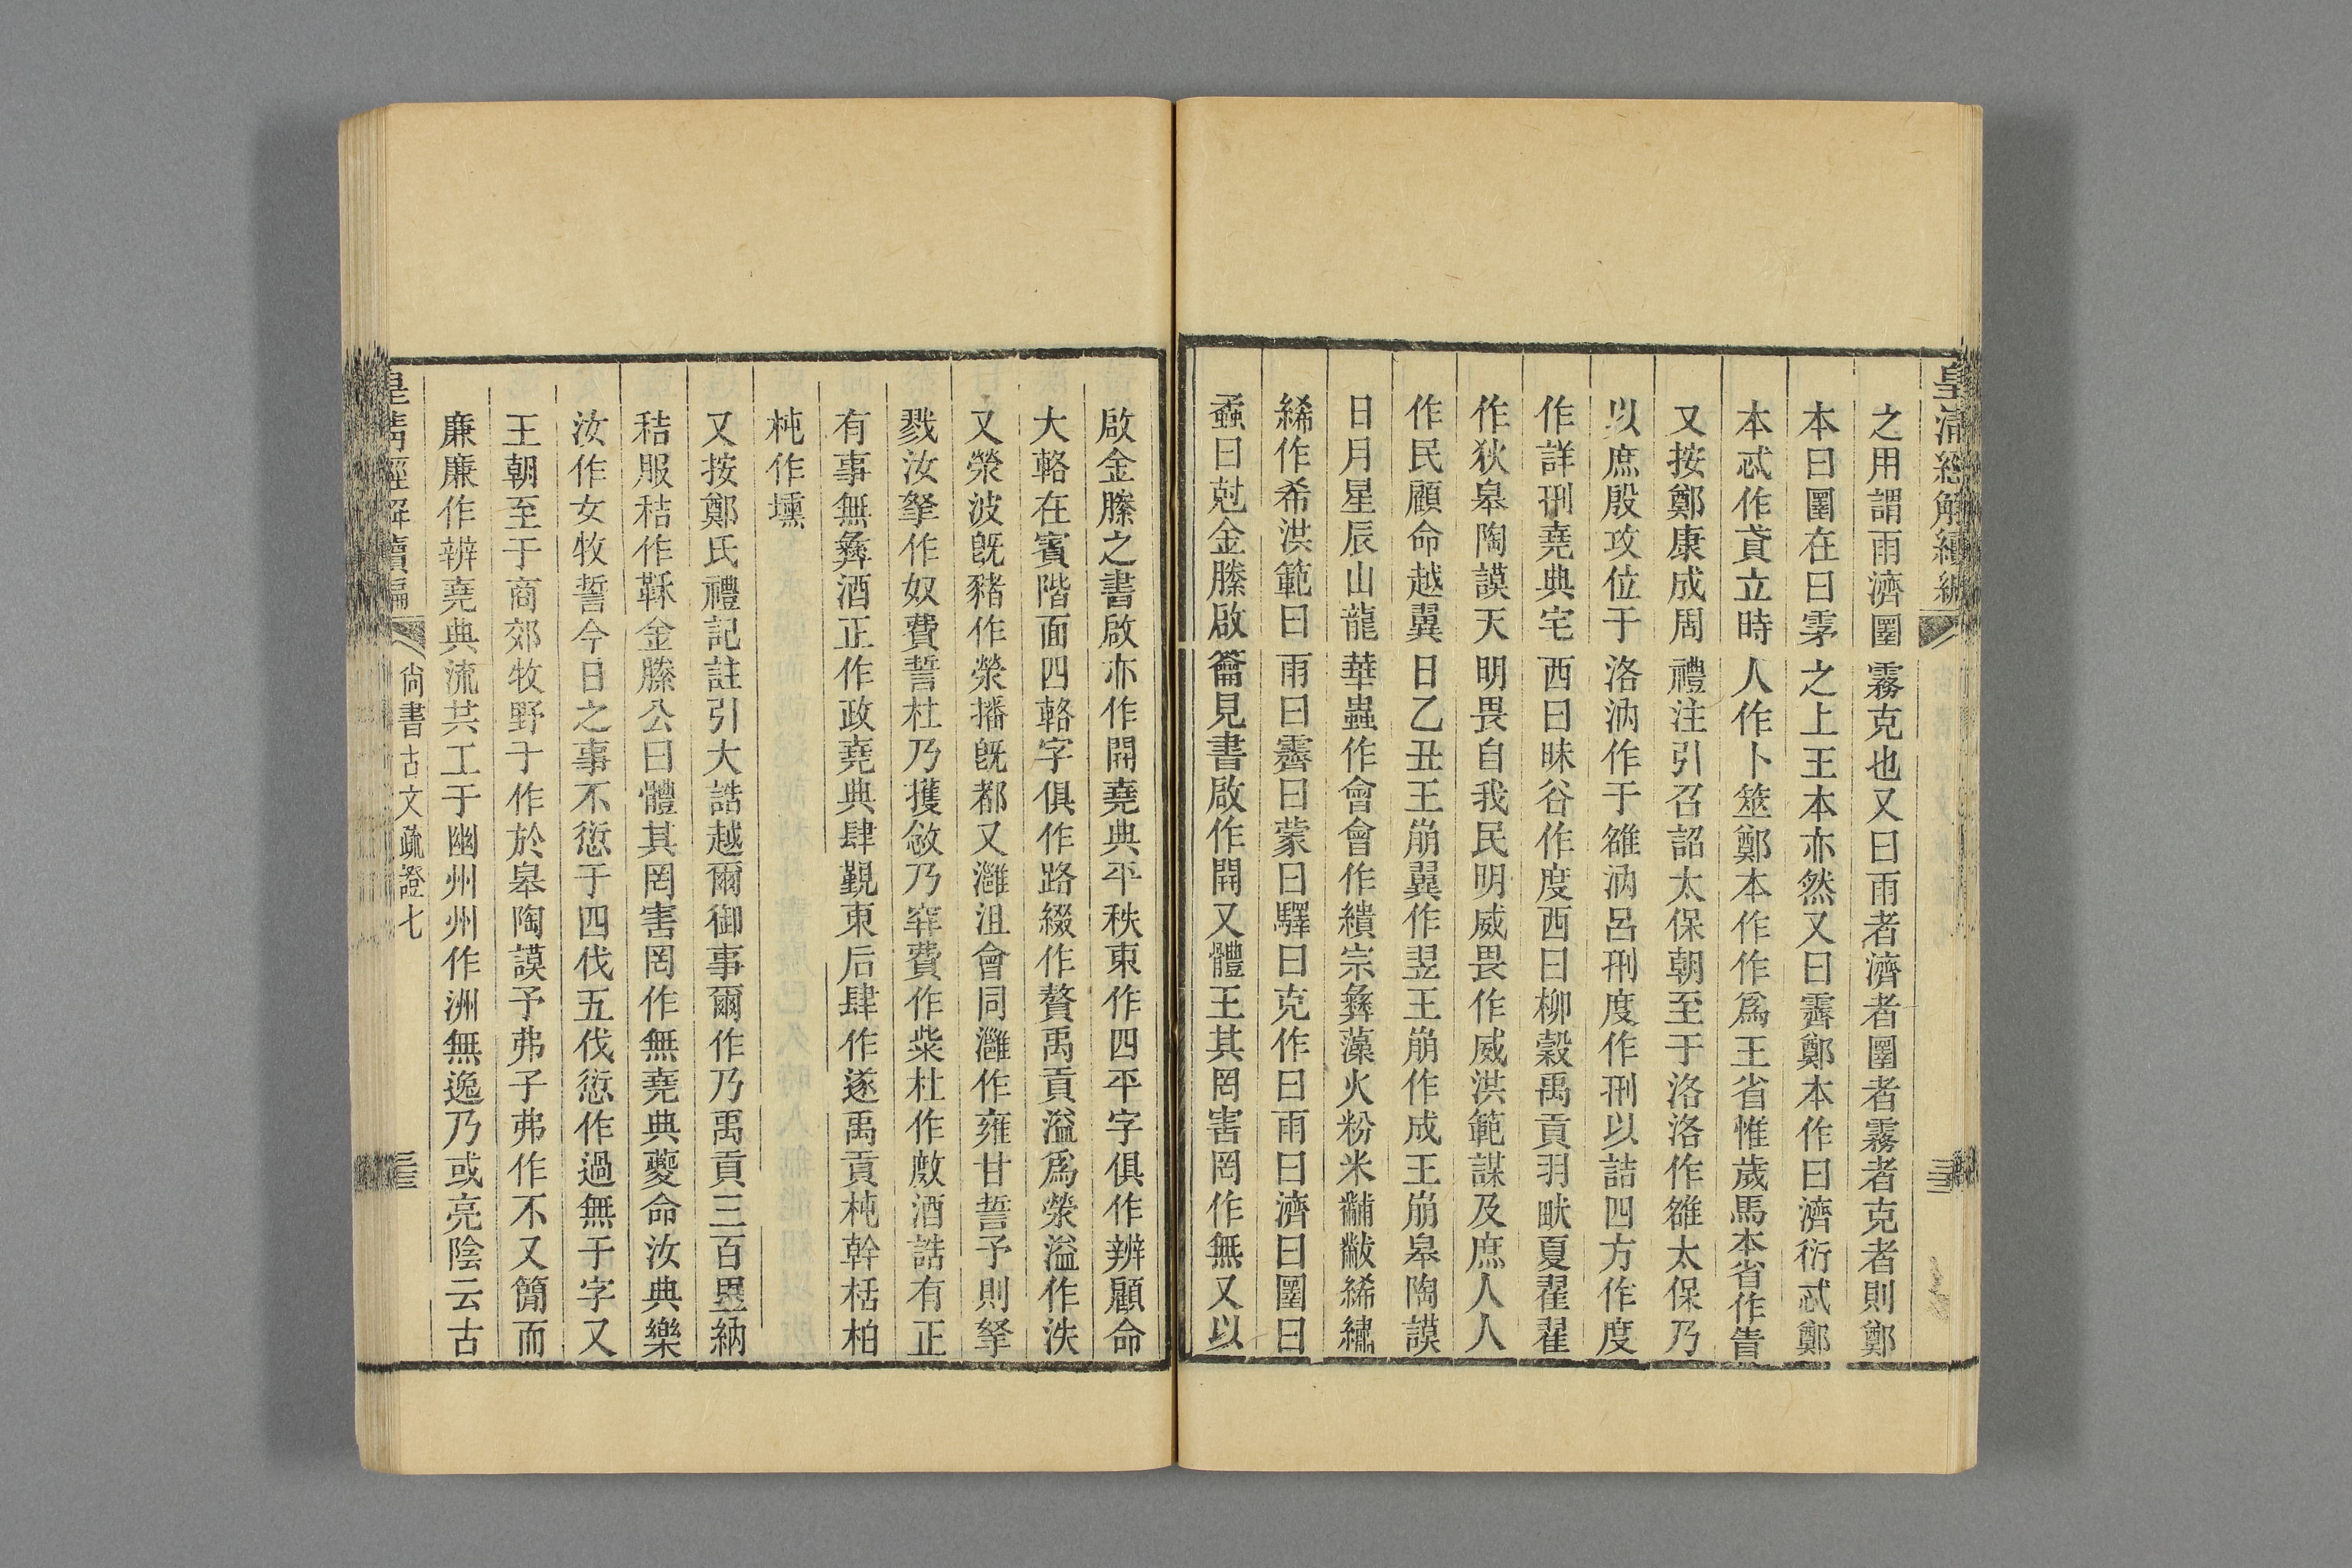 皇清經解續編
之用謂雨濟圛霧克也又曰雨者濟者圛者霧者克者則鄭
本曰圛在曰雺之上王本亦然又曰霽鄭本作曰濟衍忒鄭
本忒作貣立時人作卜筮鄭本作作爲王省惟歲馬本省作眚
又按鄭康成周禮注引召詔太保朝至于洛洛作雒太保乃
以庶殷攻位于洛汭作于雒汭呂刑度作刑以詰四方作度
作詳刑堯典宅西曰昧谷作度西曰柳穀禹貢羽畎夏翟翟
作狄皋陶謨天明畏自我民明威畏作威洪範謀及庶人人
作民顧命越翼日乙丑王崩翼作翌王崩作成王崩皋陶謨
日月星辰山龍華蟲作會會作繢宗彝藻火粉米黼黻絺繡
絺作希洪範曰雨曰霽曰蒙曰驛曰克作曰雨曰濟曰圛曰
蟊曰尅金縢啟籥見書啟作開又體王其罔害罔作無又以
啟金縢之書啟亦作開堯典平秩東作四平字俱作辨顧命
大輅在賓階面四輅字俱作路綴作贅禹貢溢爲滎溢作泆
又滎波旣豬作滎播旣都又灉沮會同灉作雍甘誓予則孥
戮汝孥作奴費誓杜乃擭敜乃穽費作粊杜作敷酒誥有正
有事無彝酒正作政堯典肆覲東后肆作遂禹貢杶幹栝柏
杶作櫄
又按鄭氏禮記註引大誥越爾御事爾作乃禹貢三百里納
秸服秸作鞂金縢公曰體其罔害罔作無堯典夔命汝典樂
汝作女牧誓今日之事不愆于四伐五伐愆作過無于字又
王朝至于商郊牧野于作於皋陶謨予弗子弗作不又簡而
廉廉作辨堯典流共工于幽州州作洲無逸乃或亮陰云古
皇清經解續編 尙書古文疏證七